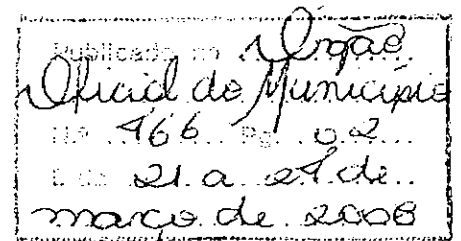 Publicado no Orgão
Oficial do Município
N.º 466 Pg. 02
Dia 21 a 27 de
março de 2008